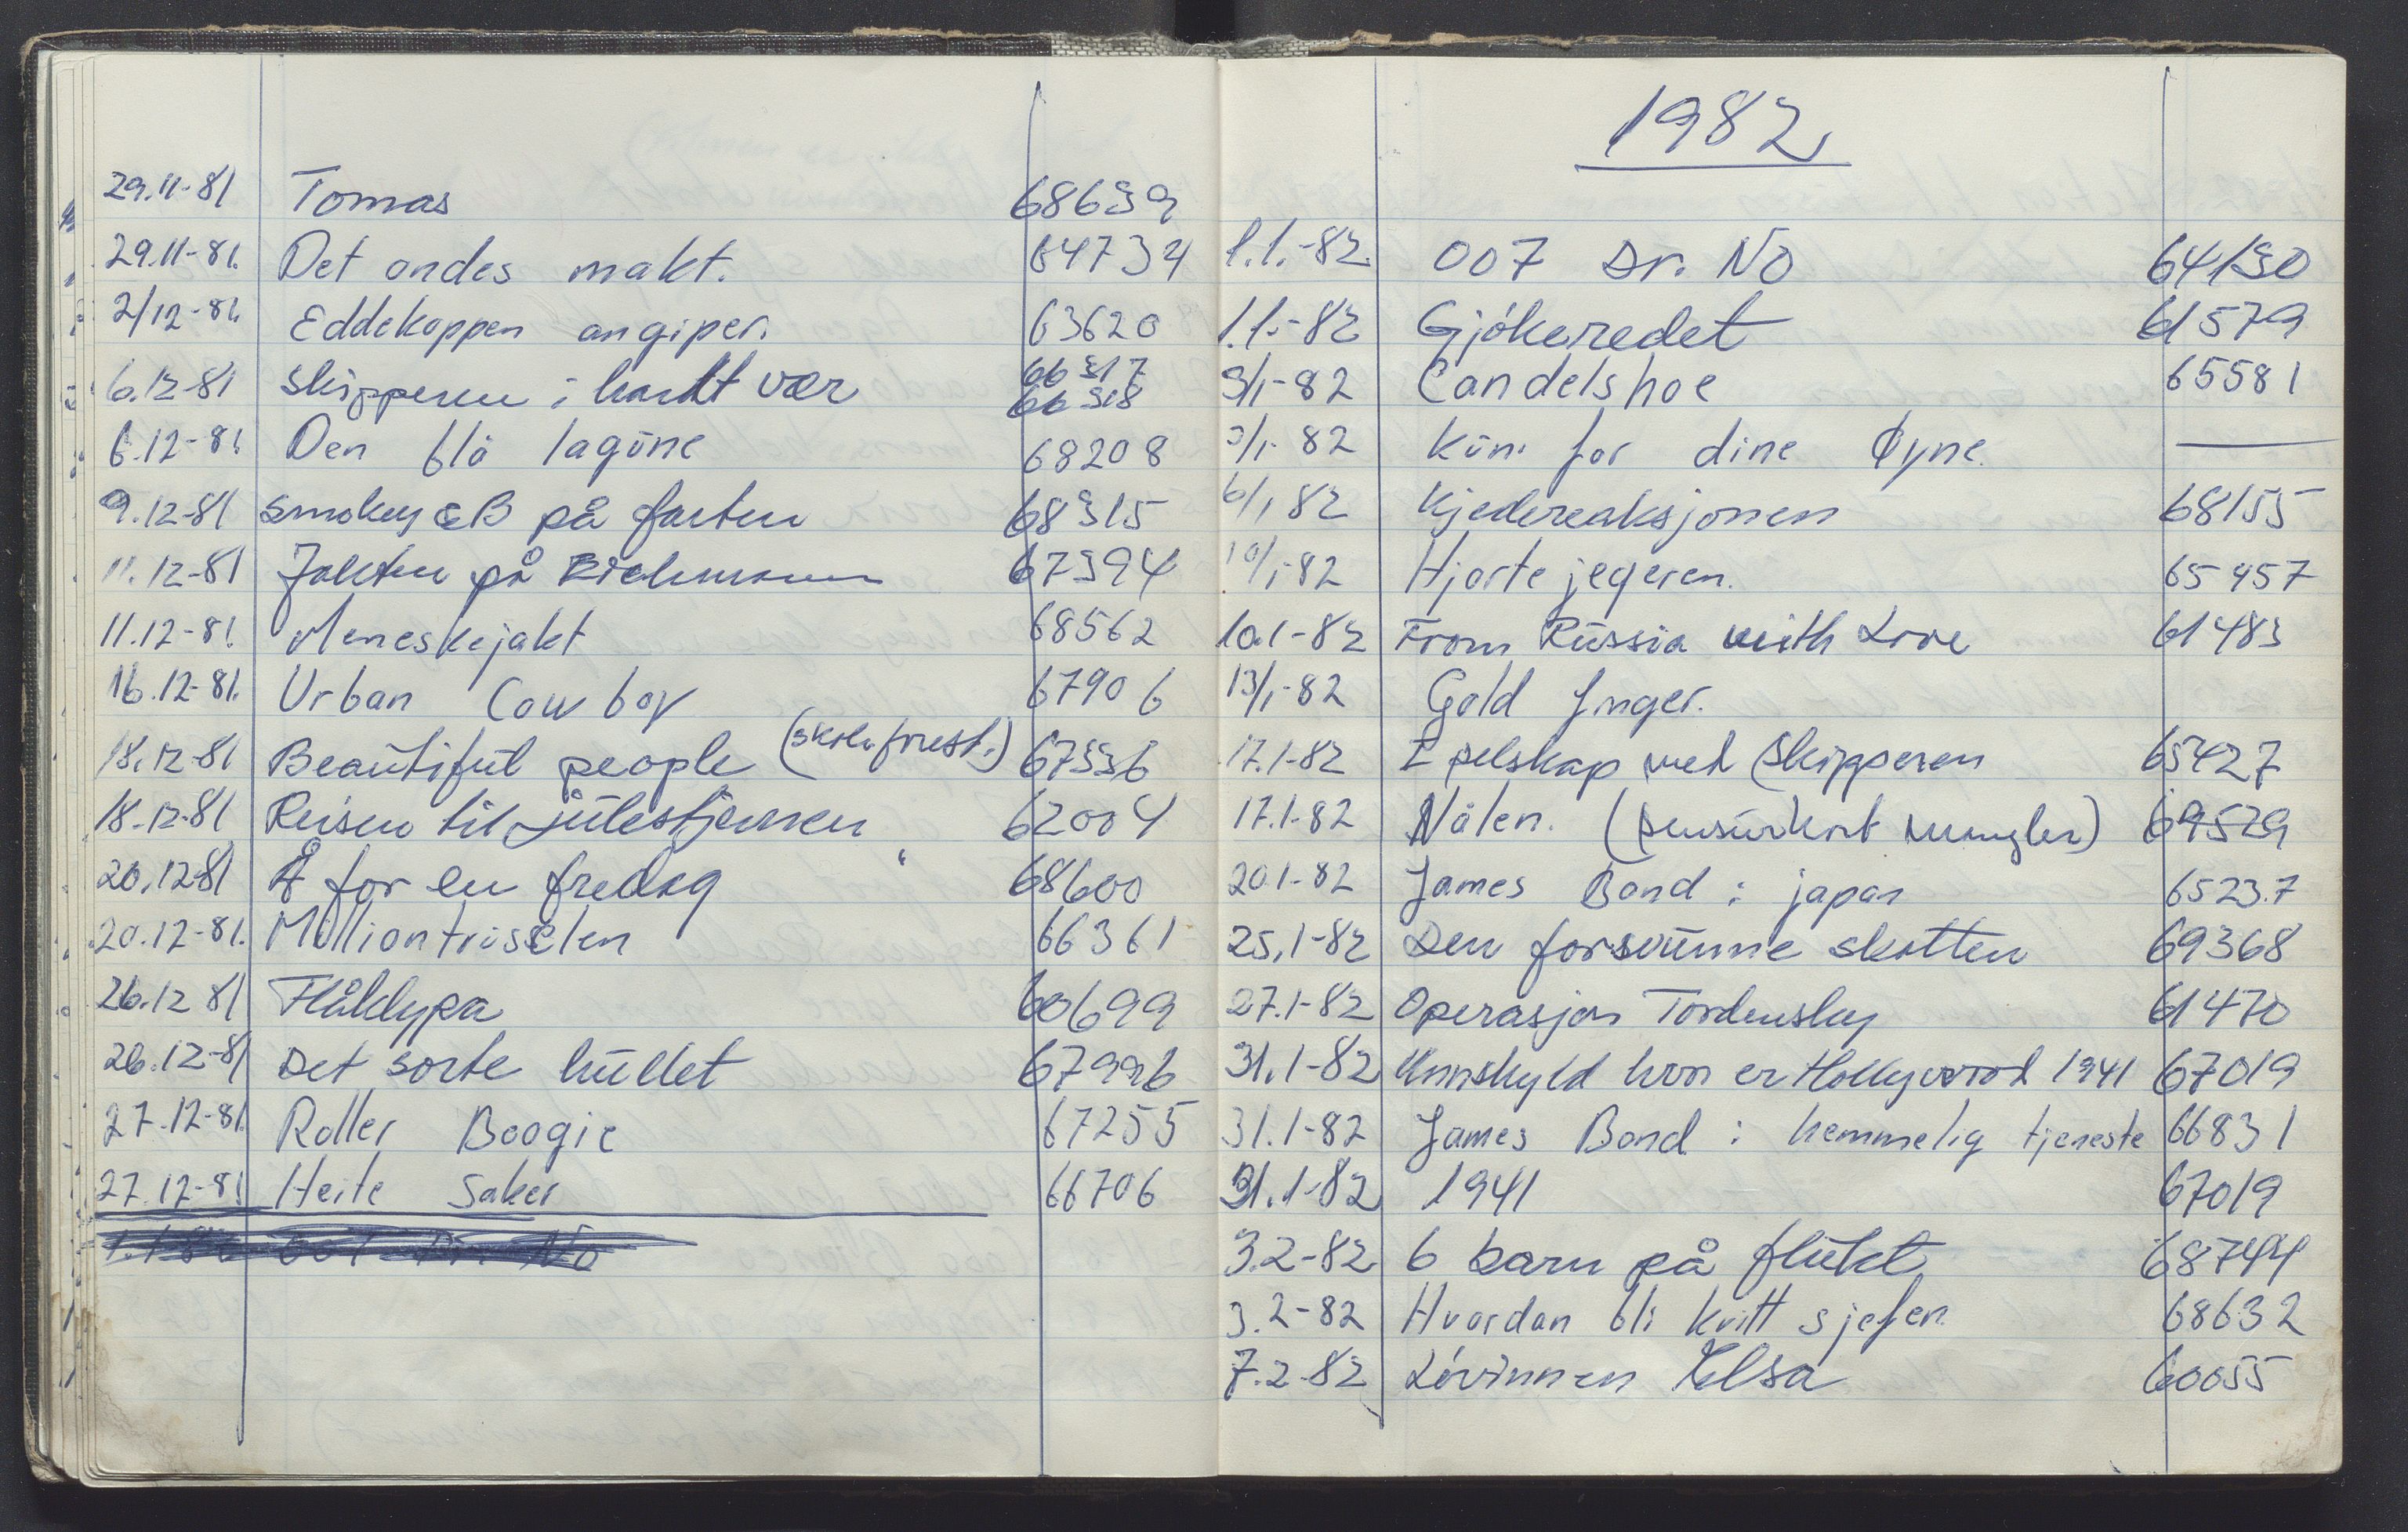 29.11-81 Tomas 68639
29.11-81. Det ondes makt. 64734
2/12-81. Eddekoppen angiper. 63620
6.12-81 Skipperen i hardt vær 66317
66318
6.12-81. Den blå lagune 68208
9.12-81 Smokey & B på farten 68315
11.12-81 Jakten på Eichmann 67394
11.12-81. Meneskejakt 68562
16.12-81. Urban Cowboy 67906
18.12-81 Beautiful people (skoleforest.) 67336
18.12-81 Reisen til julestjernen " 62004
20.12-81 Å for en fredag 68600
20.12-81. Milliontrisselen 66361
26.12 81 Flåklypa 60699
26.12-81 Det sorte hullet 67996
27.12-81. Roller Boogie 67255
27.12-81 Heite Saker 66706
1.1-82 007 Dr. No
1982
1.1.-82. 007 Dr. No 64130
1.1.-82 Gjökeredet 61579
3/1-82 Candelshoe 65581
3/1-82 Kun for dine Øyne. —
6/1 82 Kjedereaksjonen 68155
10/1-82 Hjorte jegeren. 65457
10.1-82 From Russia with Love 61483
13/1-82 Gold finger.
17.1-82 I selskap med Skipperen 65427
17.1-82 Nålen. (sensurkort mangler) 69529
20.1-82 James Bond i japan 65237
25.1-82 Den forsvunne skatten 69368
27.1-82 Operasjon Tordensky 61470
31.1-82 Unnskyld hvor er Hollywood 1941 67019
31.1-82 James Bond i hemmelig tjeneste 66831
31.1-82 1941 67019
3.2-82 6 barn på flukt 68744
3.2-82 Hvordan bli kvitt sjefen 68632
7.2-82 Lövinnen Elsa 60055